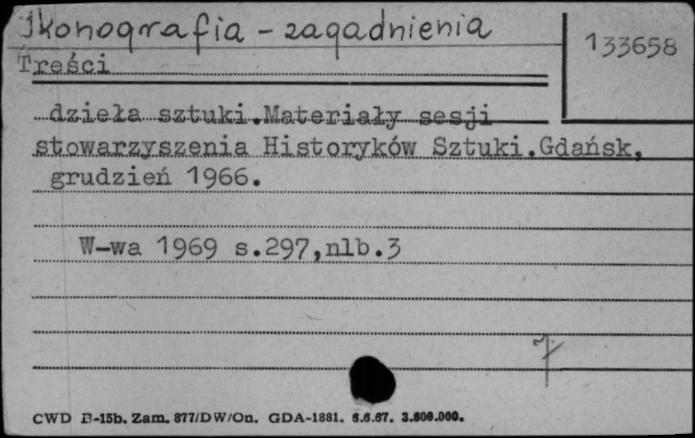 Ikonografia - zagadnienia
133658
Treści
dzieła sztuki.Materiały sesji
stowarzyszenia Historyków Sztuki.Gdańsk,
grudzień 1966.
W-wa 1969 s.297,nlb.3
CWD B-15b. Zam. 877/DW/On. GDA-1881. 6.6.67. 3.600.000.